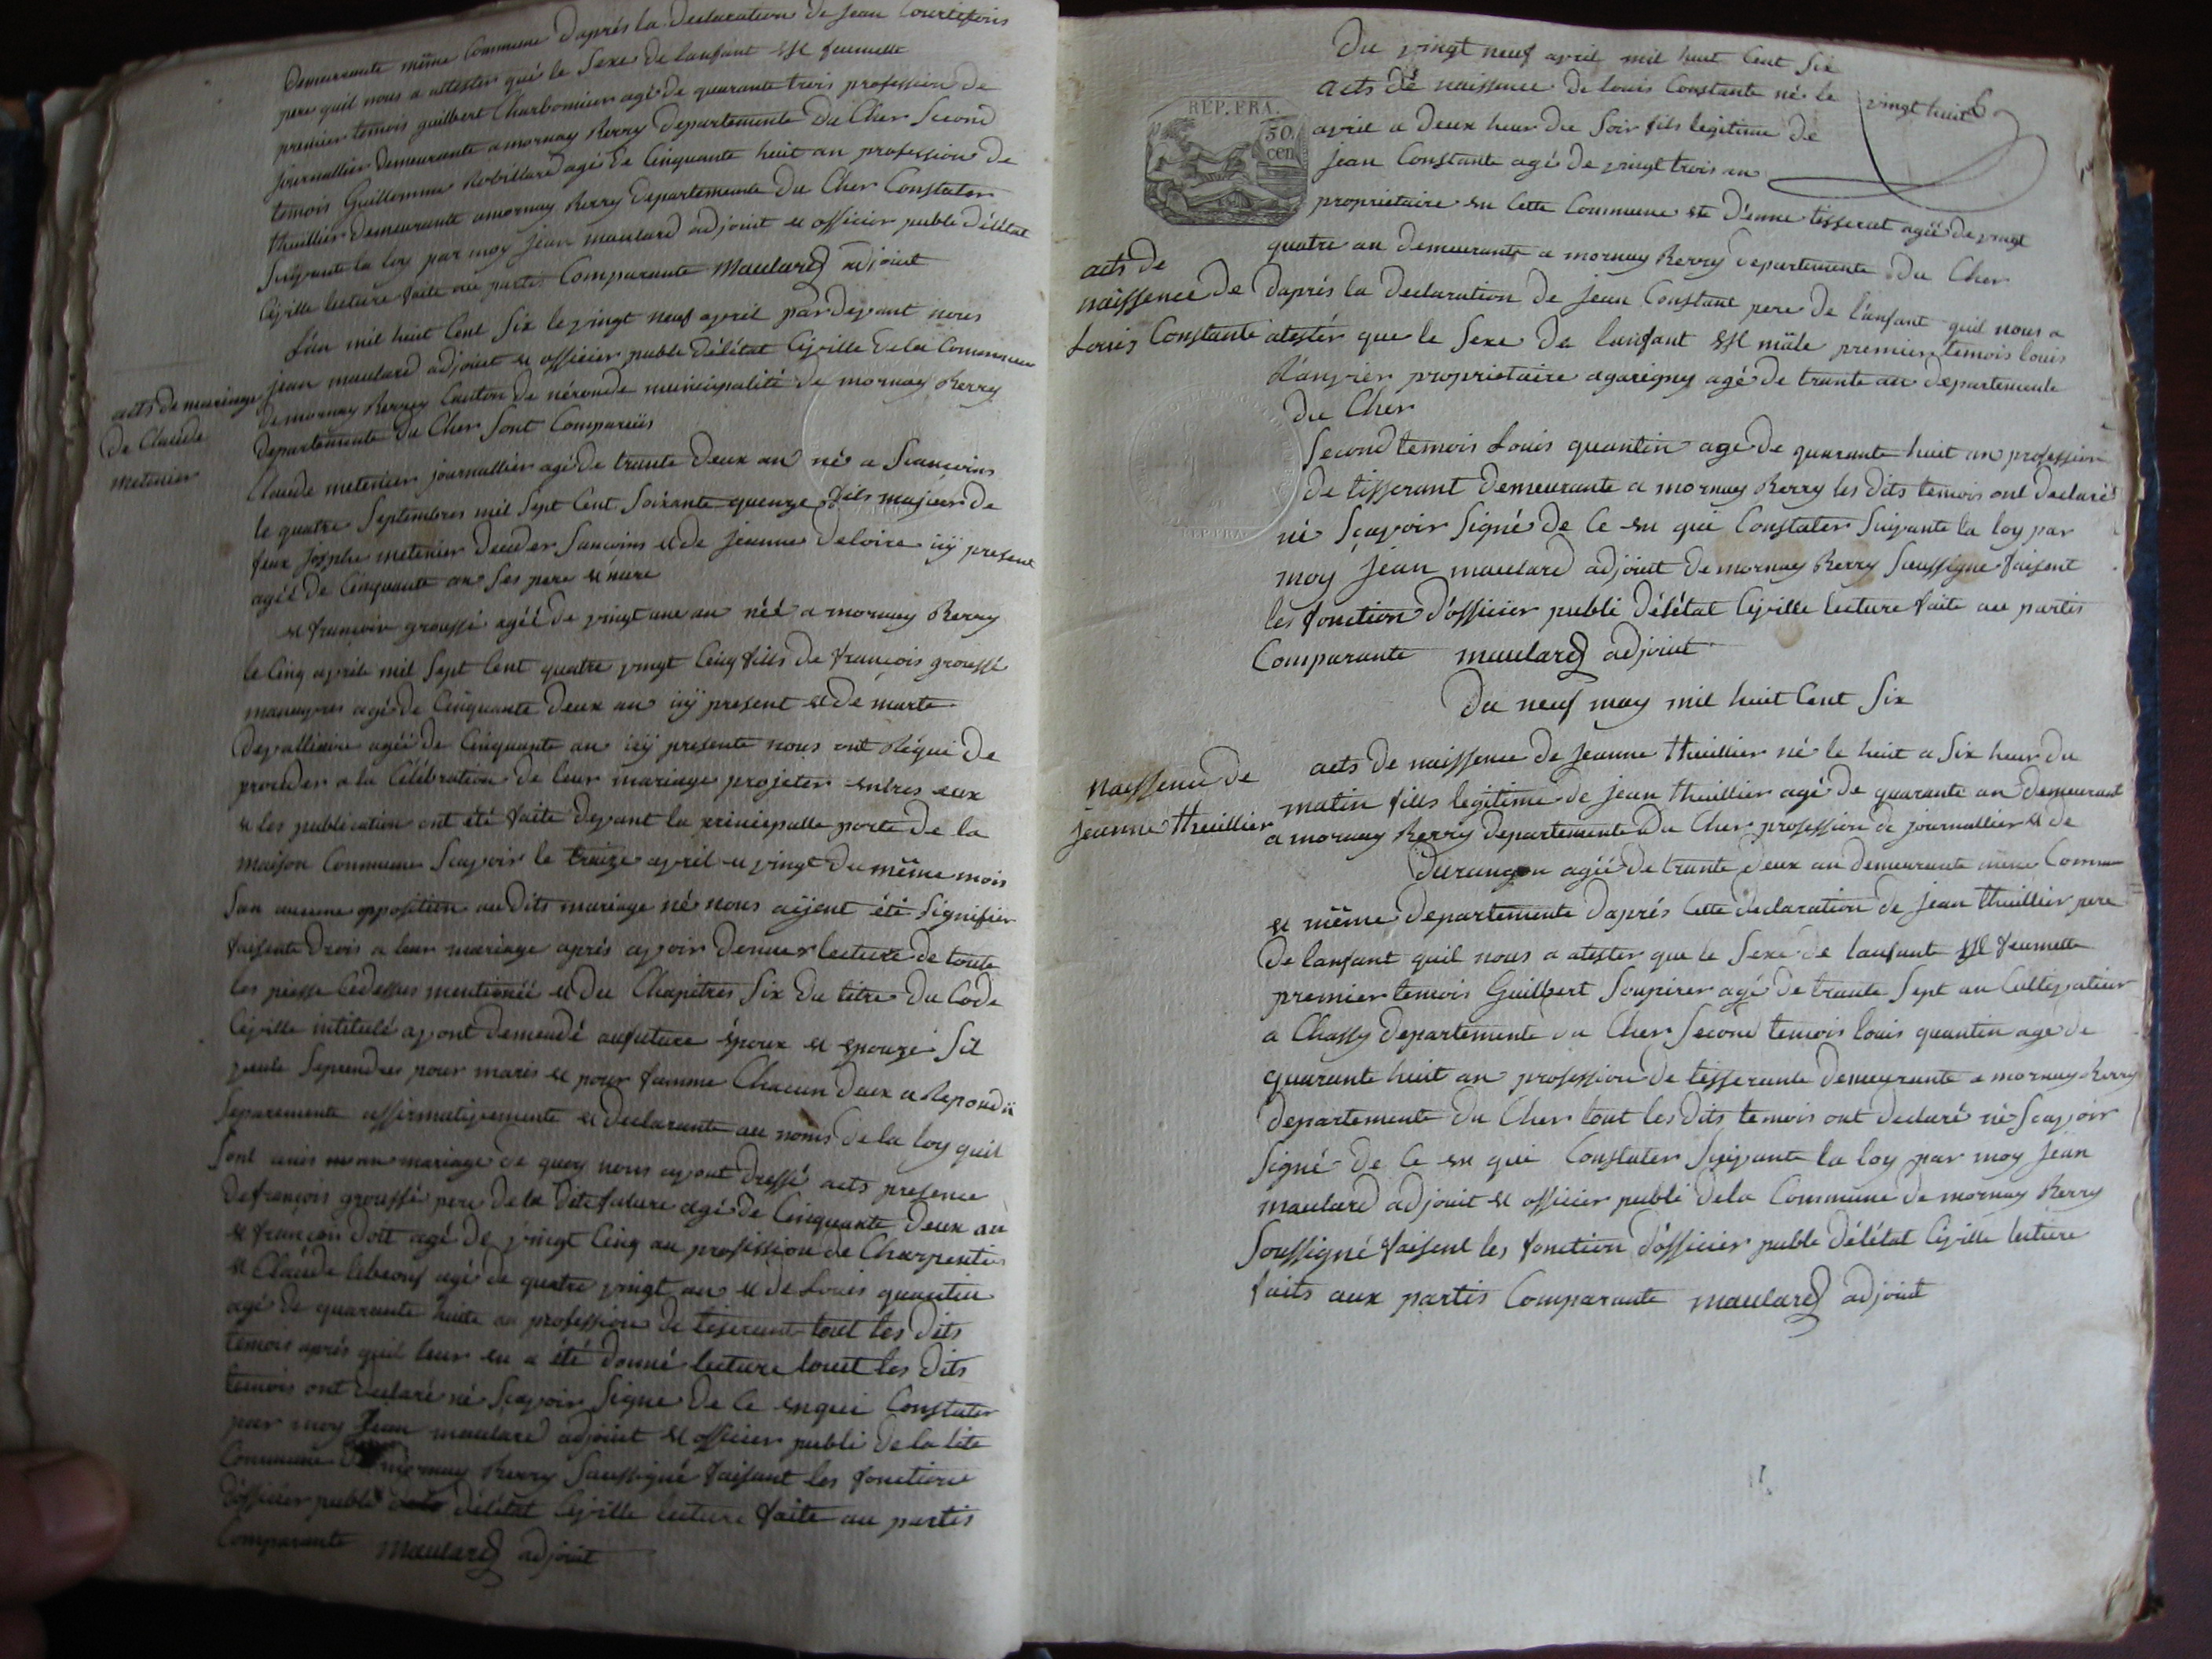 Demeurante même Commune Daprés la Declaration de Jean Courtefois
pere quil nous a attester qué le Sexe de lanfant est feumelle
premier temois guilbert Charbonnier agé de quarante trois profession de
journallier Demeurante a mornay Berry Departemente Du Cher Second
temois Guillemme Robillard agé de Cinquante huit an profession de
thuillier Demeurante amornay Berry Departemente Du Cher Constater
Suivante la loy par moy jean maulard adjouit et officier puble Délétat
Ciyille lecture faite au partis Comparante Maulard adjouit
L'an mil huit Cent Six le vingt neuf apvril pardevant nous
jean maulard adjouit et officier puble Délétat Civille Dela Commune
acts de mariage
de Claude
metenier
De mornay Berry Canton de néronde municipalité de mornay Berry
Departemente Du Cher Sont Comparüs
Claude metenier journallier agé de trante Deux an né a Sancoins
le quatre Septembres mil Sept Cent Soixante quenze fils majeur de
feux Josphe metenier Deceder Sancoins et de jeanne Deloire icy present
agéé De Cinquante an Ses pere et mere
et françoise groussé agéé de vingt une an néé a mornay Berry
le Cinq aprils mil Sept Cent quatre vingt Cinq fills de françois groussé
maneuvres agé de Cinquante Deux an icy present et de marte
Devallière agéé De Cinquante an icy presente nous ont Réque De
proceder a la Célébration de leur mariage projeter entres eux
et les publication ont été faite Devant la principalle porte De la
maison Commune Scavoir le treize avril et vingt du même mois
San aucune opposition au Dits mariage né nous aijent été Signifier
faisente Drois a leur mariage aprés avoir Donner lecture de toute
les piesse Cidessus mentionéé et du Chapitres Six Du titre Du Code
Civille intitulé ayont Demendé aufuture époux et epouze Sil
veule Seprendres pour maris et pour famme Chacun Deux a Repondü
Separemente affirmativemente et Declarante au noms De la loy quil
Sont unis en mariage De quoy nous ayont Dressé acts presence
De françois groussé pere De la Dite future agé De Cinquante Deux an
et françois Doit agé De vingt Cinq an profession de Charpentier
et Claude lebeouf agé de quatre vingt an et de Louis quantin
agé de quarante huite an profession De tiserant tout les Dits
temois aprés quil leur en a été Donné lecture tout les Dits
temois ont Declaré né Scavoir Signe De Ce enqui Constater
par moy Jean maulard adjouit et officier publi De la Dite
Commune De mornay Berry Saussigné faisant les fonction
D'officier publi Délétat Civille lecture faite au partis
Comparante maulard adjouit
Du vingt neuf avril mil huit Cent Six
acts dé naissence De Louis Constante né le vingt huit
avril a Deux heur Du Soir fils legitime De
jean Constante agé De vingt trois an
proprietaire en Cette Commune et D'enne tisserat agéé De vingt
quatre an Demeurante a mornay Berry Departemente Du Cher
acts De
naissence De
Louis Constante
Daprés la Declaration De jean Constant pere De l'anfant quil nous a
atestér que le Sexe De lanfant est mâle premier temois louis
Lanvrier proprietaire agarigny agé de trante an Departemente
Du Cher
Second temois Louis quantin agé de quarante huit an profession
De tisserant Demeurante a mornay Berry les Dits temois ont Declaré
né Sçavoir Signé De Ce en qui Constater Suivante la loy par
moy Jean maulard adjouit De mornay Berry Soussigne faisent
les fonction D'officier publi Délétat Civille lecture faite au partis
Comparante maulard adjouit
Du neuf may mil huit Cent Six
Naissence De
jeanne thuillier
acts De naissence De jeanne thuillier né le huit a Six heur Du
matin fills legitime de jean thuillier agé De quarante an Demeurant
a mornay Berry Departemente Du Cher profession De journallier et de
Durangon agéé De trante Deux an Demeurante même Commune
et même Departemente Daprés Cette Declaration De jean thuillier pere
De lanfant quil nous a atester que le Sexe De lanfante est feumelle
premier temois Guilbert Soupirer agé De trante Sept an Cultivatieur
a Chassy Departemente Du Cher Second temois louis quantin agé De
quarante huit an profession De tisserante Demeurante a mornay Berry
Departemente Du Cher tout les Dits temois ont Declaré né Scavoir
Signé De Ce en qui Constater Suivante la loy par moy Jean
maulard adjouit et officier publi Dela Commune De mornay Berry
Soussigné faisent les fonction D'officier puble Délétat Civille lecture
faits aux partis Comparante maulard adjouit
REP. FRA.
50
cen